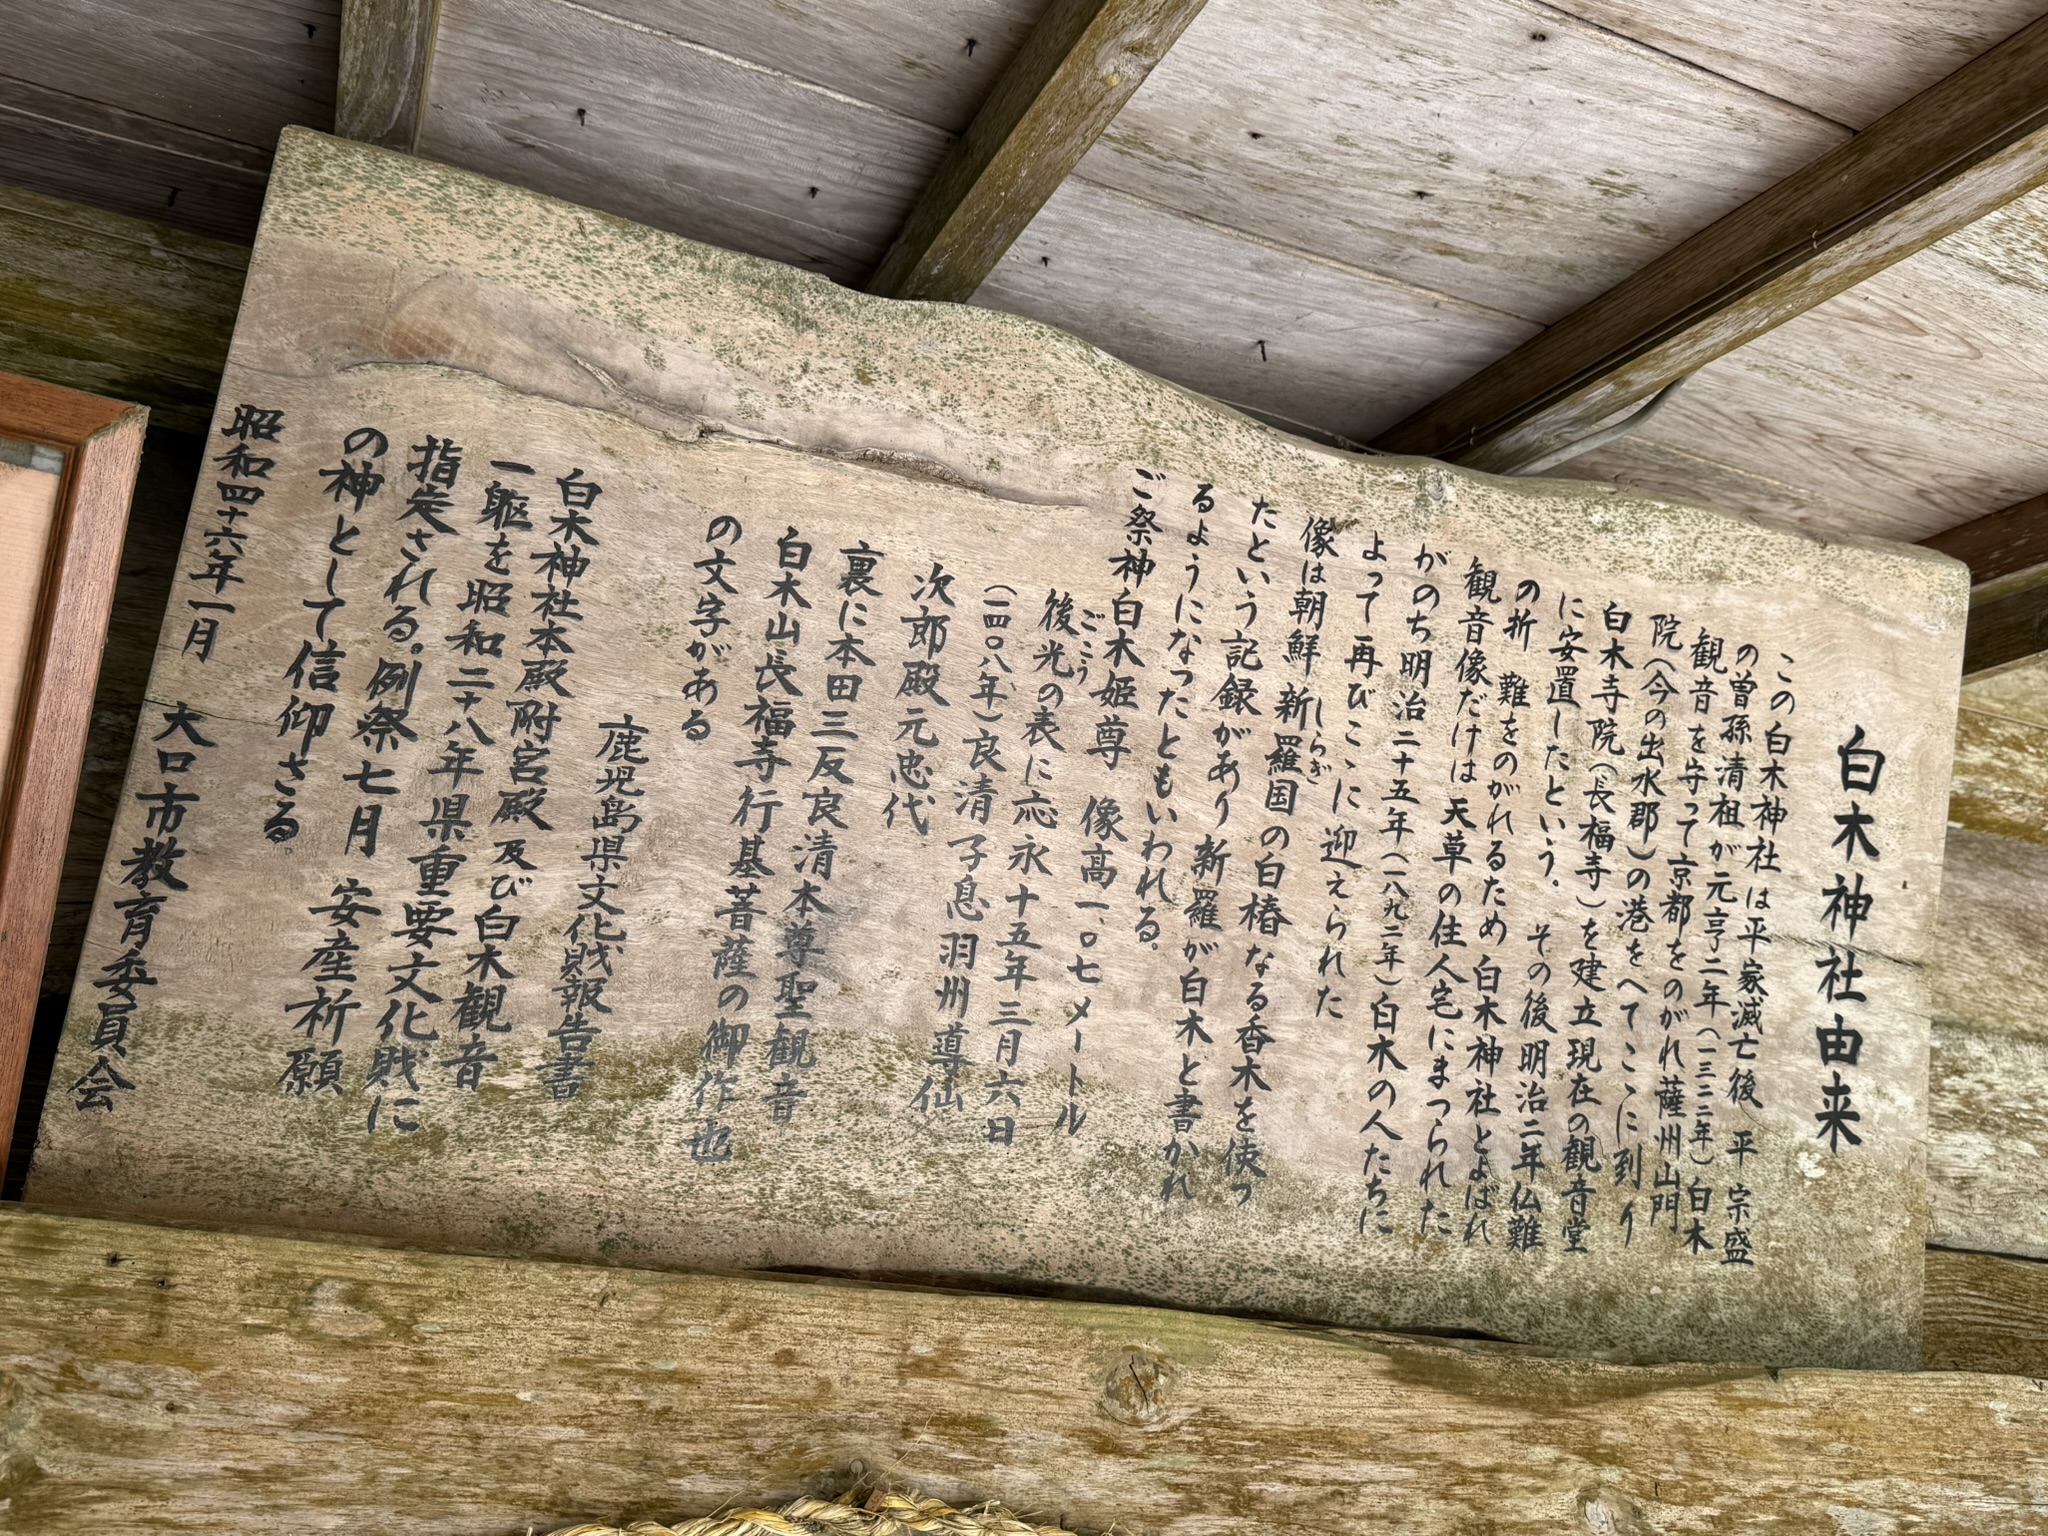 白木神社由来
この白木神社は平家滅亡後 平 宗盛
の曽孫清祖が元亨二年(一三二二年)白木
観音を守って京都をのがれ薩州山門
院(今の出水郡)の港をへてこゝに到り
白木寺院(長福寺)を建立現在の観音堂
に安置したという。 その後明治二年仏難
の折 難をのがれるため 白木神社とよばれ
観音像だけは 天草の住人宅にまつられた
がのち明治二十五年(一八九二年)白木の人たちに
よって再びこゝに迎えられた
像は朝鮮 新羅国の白椿なる香木を使っ
しらぎ
たという記録があり 新羅が白木と書かれ
るようになったともいわれる。
ご祭神白木姫尊 像高一、〇七メートル
ごこう
後光の表に応永十五年三月六日
(一四〇八年)良清子息羽州導仙
次郎殿元忠代
裏に本田三反良清本尊聖観音
白木山長福寺行基菩薩の御作也
の文字がある
鹿児島県文化賎報告書
白木神社本殿附宮殿及び白木観音
一躯を昭和二十八年県重要文化賎に
指定される。例祭七月 安産祈願
の神として信仰さる
昭和四十六年一月 大口市教育委員会